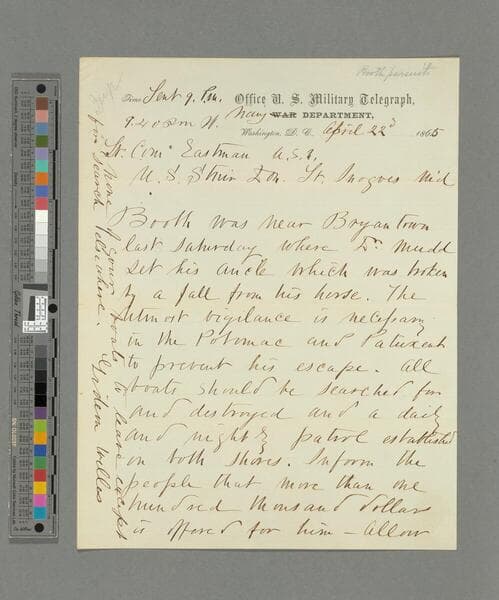 Booth pursuit
From Sent 9. Pm. Office U. S. Military Telegraph,
Navy
WAR DEPARTMENT,
9.40 pm
Washington, D. C. April 22d 1865
Lt. Com Eastman U.S.N.
U. S. St. Inogoes Md
Booth was near Bryantown
last Saturday where Dr. Mudd
set his ancle which was broken
by a fall from his horse. The
utmost vigilance is necessary
in the Potomac and Patuxent
to prevent his escape. All
boats should be searched for
and destroyed and a daily
and nightly patrol established
on both shores. Inform the
people that more than one
hundred thousand dollars
is offered for him - Allow
none of your boats to leave except
for search elsewhere. Gideon Welles